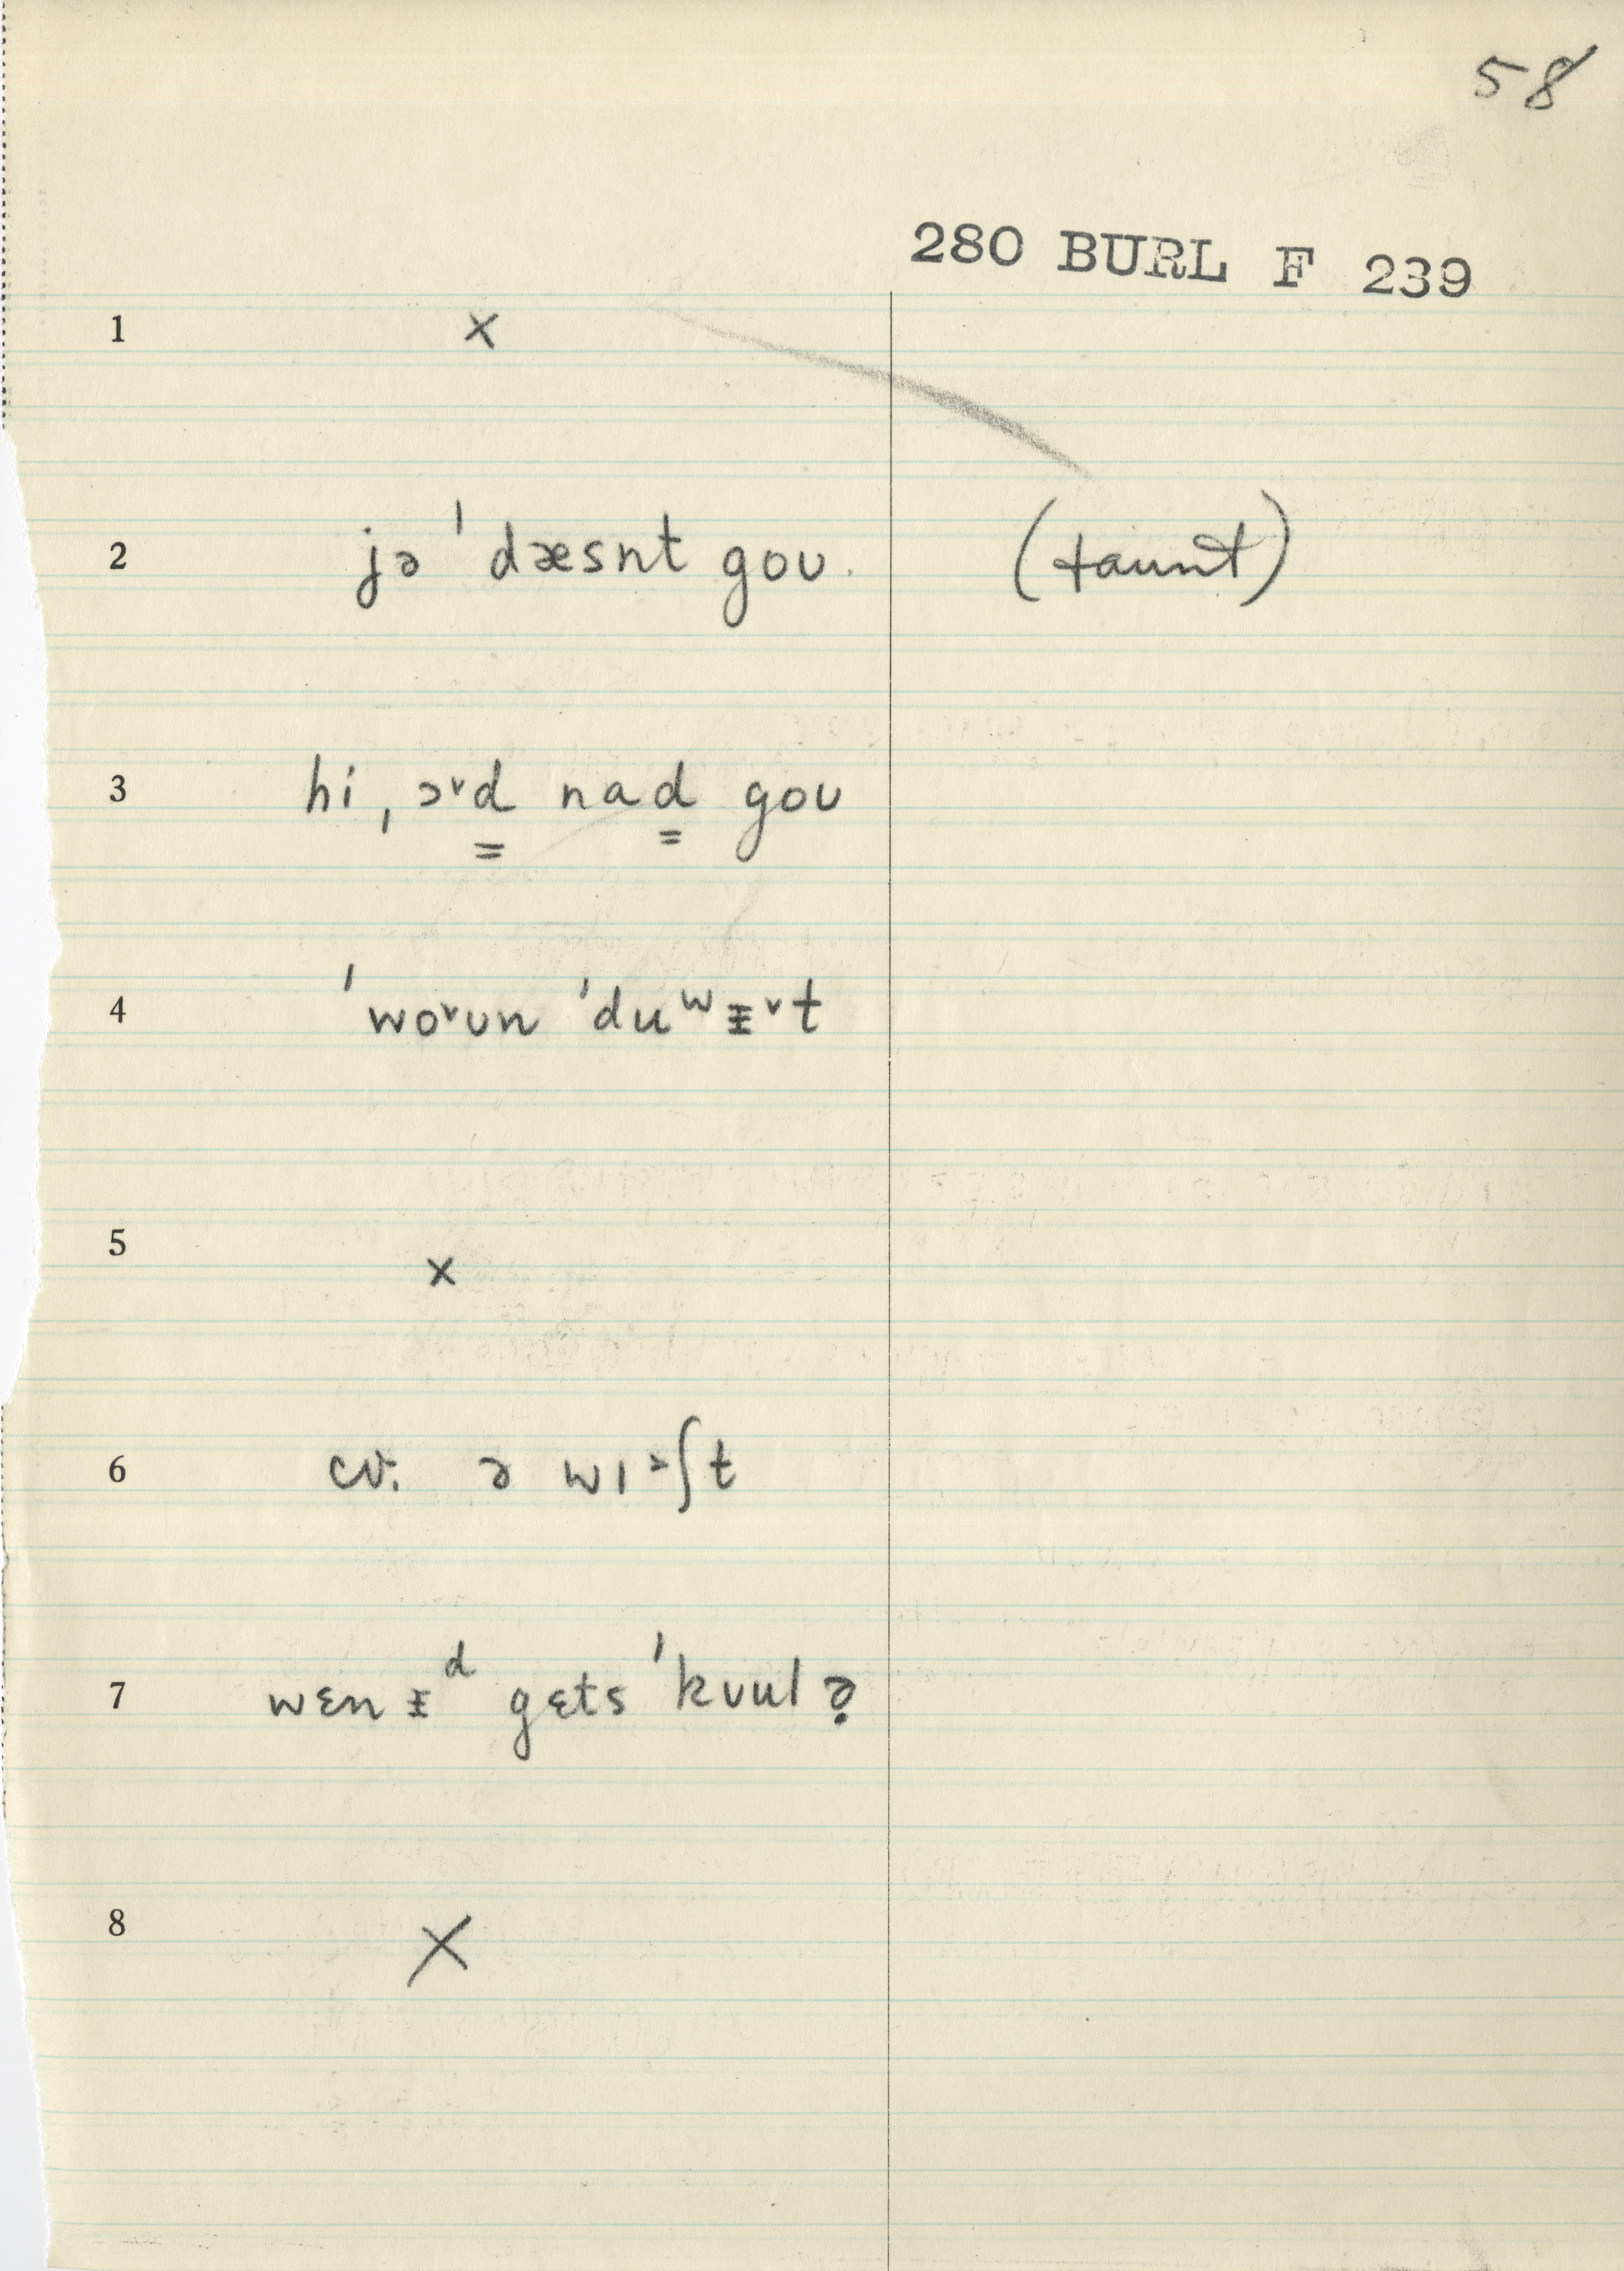 58
280 BURL F 239
1 x
2 jə ˈdæsnt goʊ. (taunt)
3 hi ˌɔ˅d̳ nad̳ goʊ
4 ˈwo˅ʊn ˈduʷᵻ˅t
5 x
6 cv. ə wɪ˃ʃt
7 wɛn ᵻᵈ gɛts ˈkʊul?
8 X